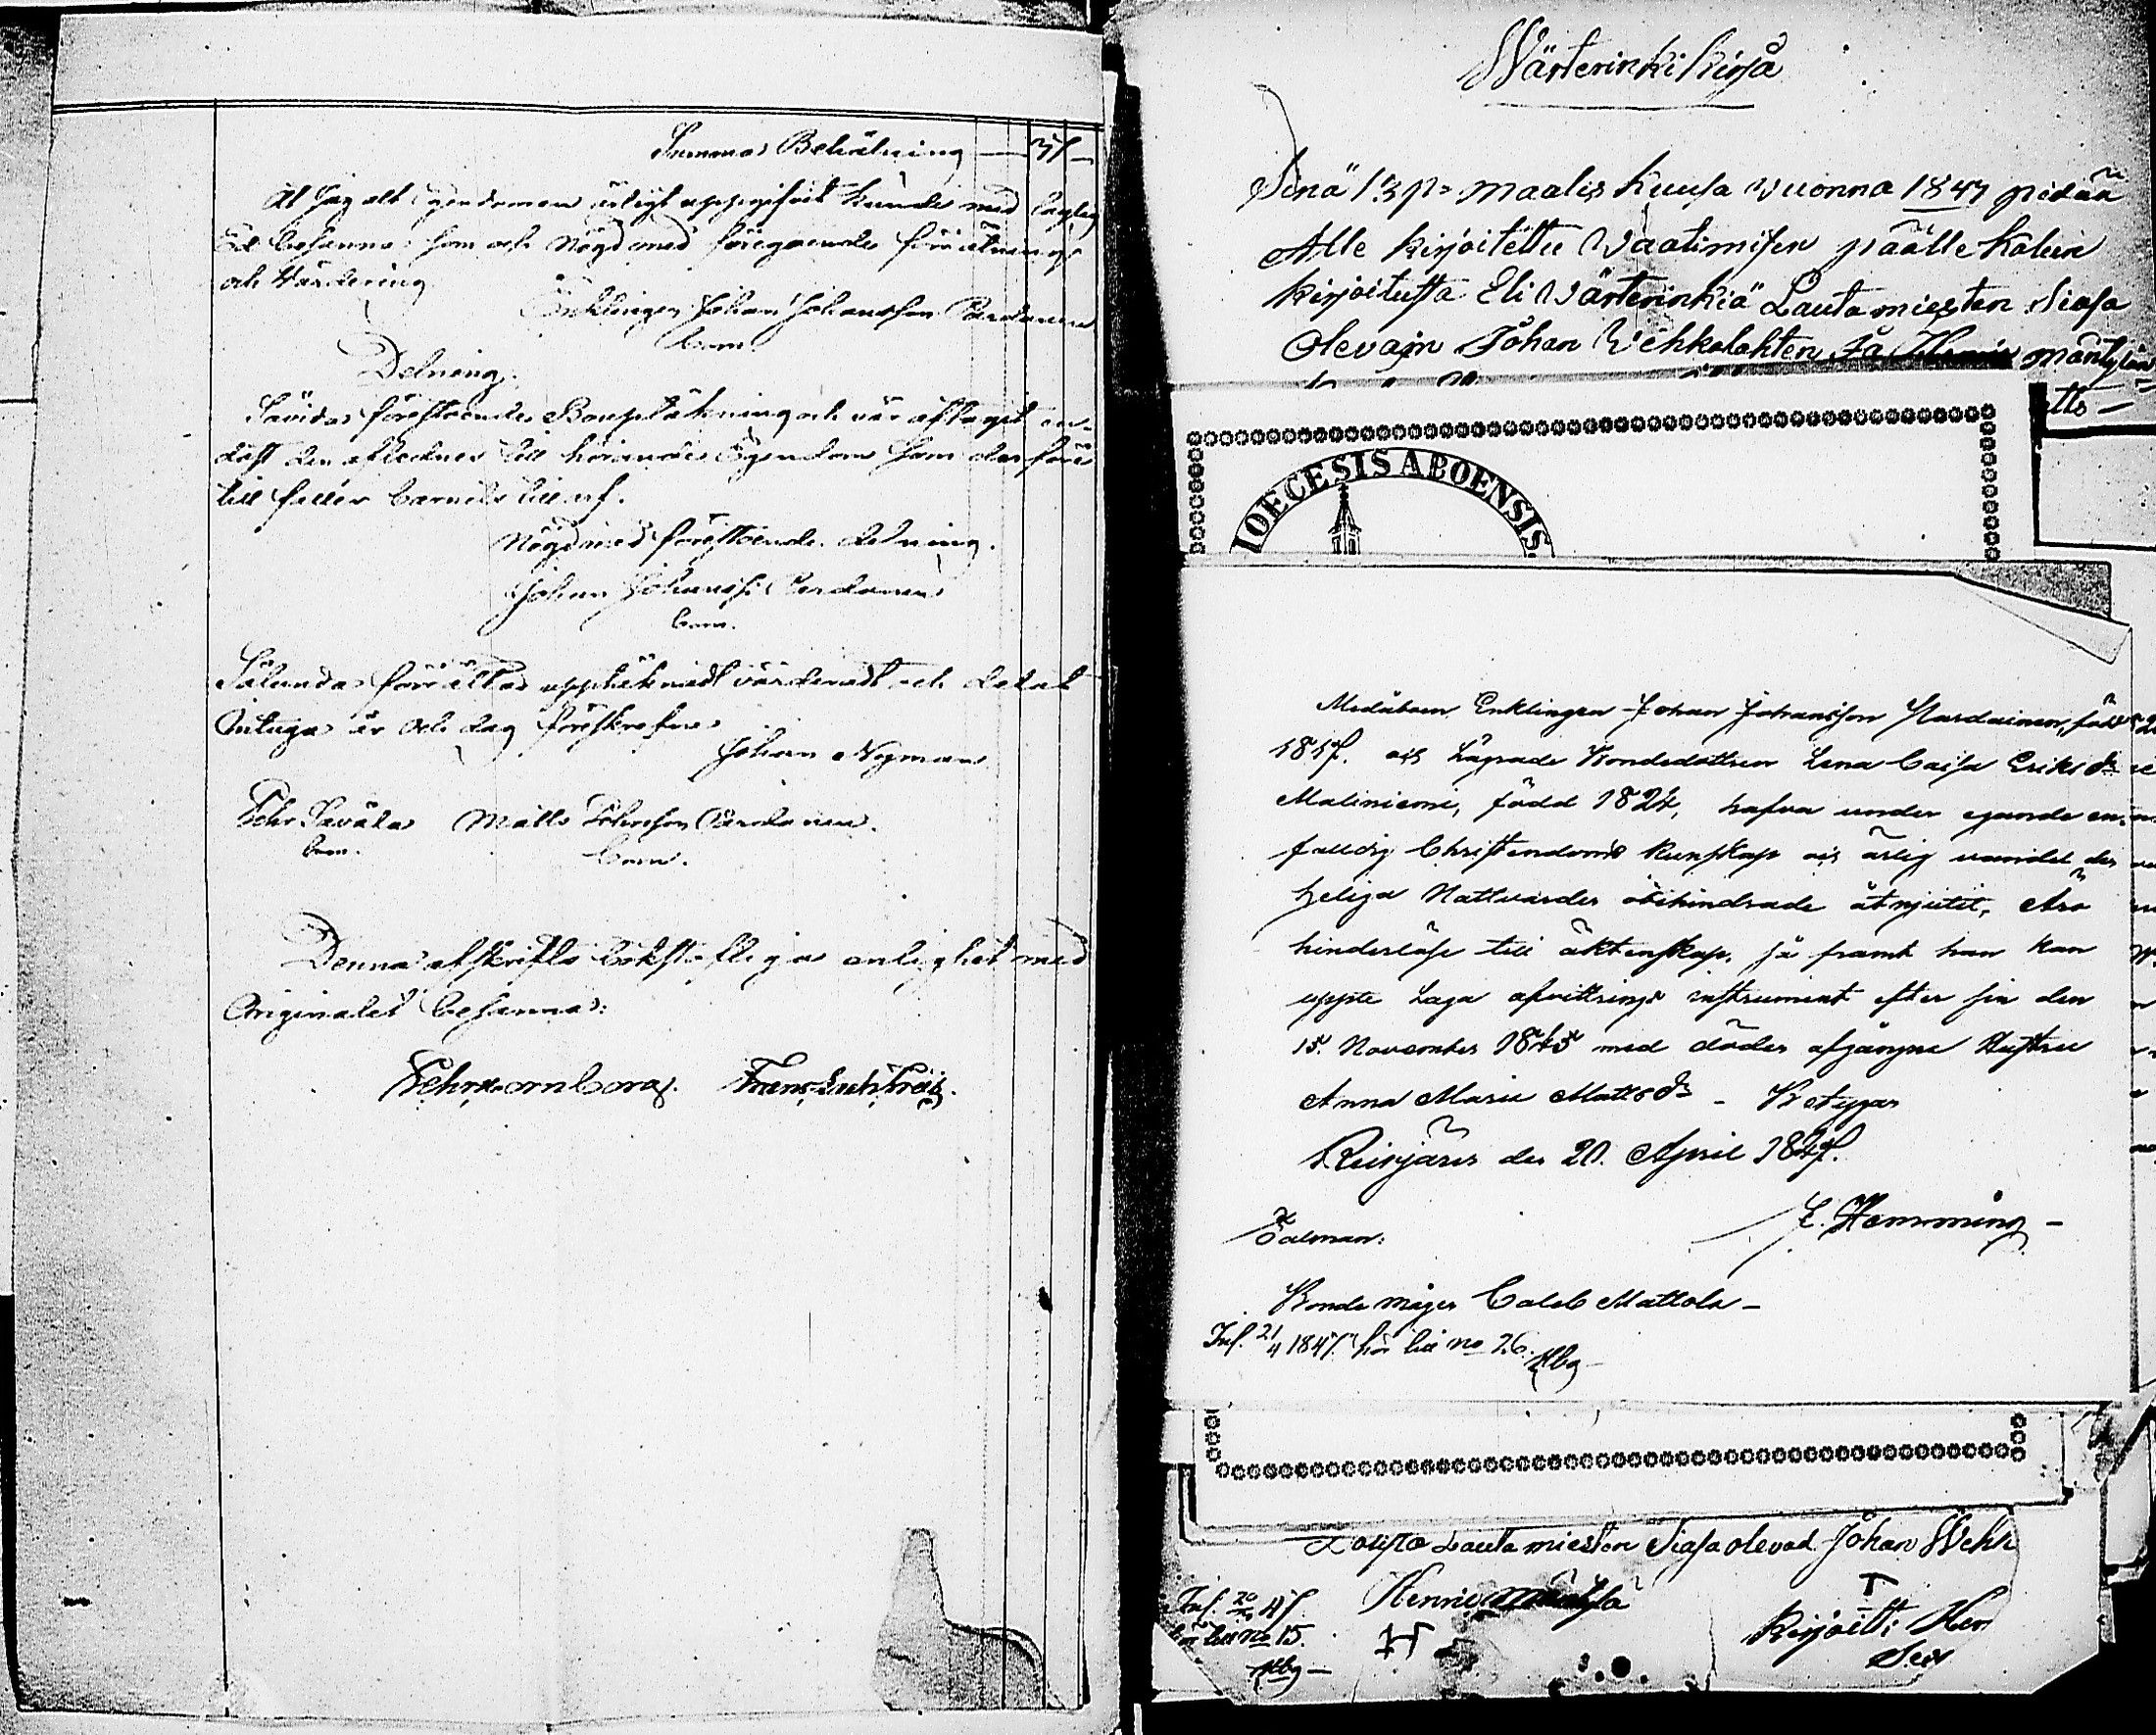 Summa Behålning — 37 —
At Jag alt Egendomen ärligt uppgifvit kunde med laglig
Ed besanna: som och Nögd med föregående förrätning
och Värdering
Enklingen Johan Johansson Pardanen
bom.
Delning.
Såvida förestående Bouptäkning och vär aftagit en-
dast den aflednes till hörande Egendom som derföre
till faller barnets till arf.
Nögd med förestående delning.
Johan Johanss: Pardanen
bom.
Sålunda förrättad upptäknadt värderadt och delat
Intyga år och dag föreskrefne
Johan Nyman
Pehr Savåla Matts Johansson Pardanen.
bom. bom.
Denna afskrifts bokstafliga enlighet med
Originalet besanna:
Wärterinki Kirja
Sinä 13 p: Maalis Kuusa Vuonna 1847 pidän
Alle kirjoitettu Vaatimisen päälle kalun
kirjoitusta Eli Värterinkiä Lauta miesten Siasa
Olevain Johan Wehkalahten ja mäntylän
tts —
IOECESIS ABOENSIS.
Medåboen Enklingen Johan Johansson Pardainen, född
1817. och Lägrade Bondedottren Lena Caisa Eriks dr
Maliniemi, född 1824, hafva under egande en-
faldig Christendoms kunskap och ärlig vandel den
heliga Nattvarden obehindrade åtnjutit, Äro
hinderlöse till äktenskap, så framt han kan
uppte Laga afvittrings instrument efter sin den
15. November 1845 med döden afgångne Hustru
Anna Maria Matts dr – Betygar
Reisjärvi den 20. April 1847.
E. Hemming –
Talman:
Bonde måger Caleb Mattola –
Inf. 21/4 1847. hör lia no 26.
Hbg –
Lauta miesten Siasa olevad Johan Wehk
Inf. 20/ 47.
lia no 15.
Hbg –
Henric
Kirjoitti Hen